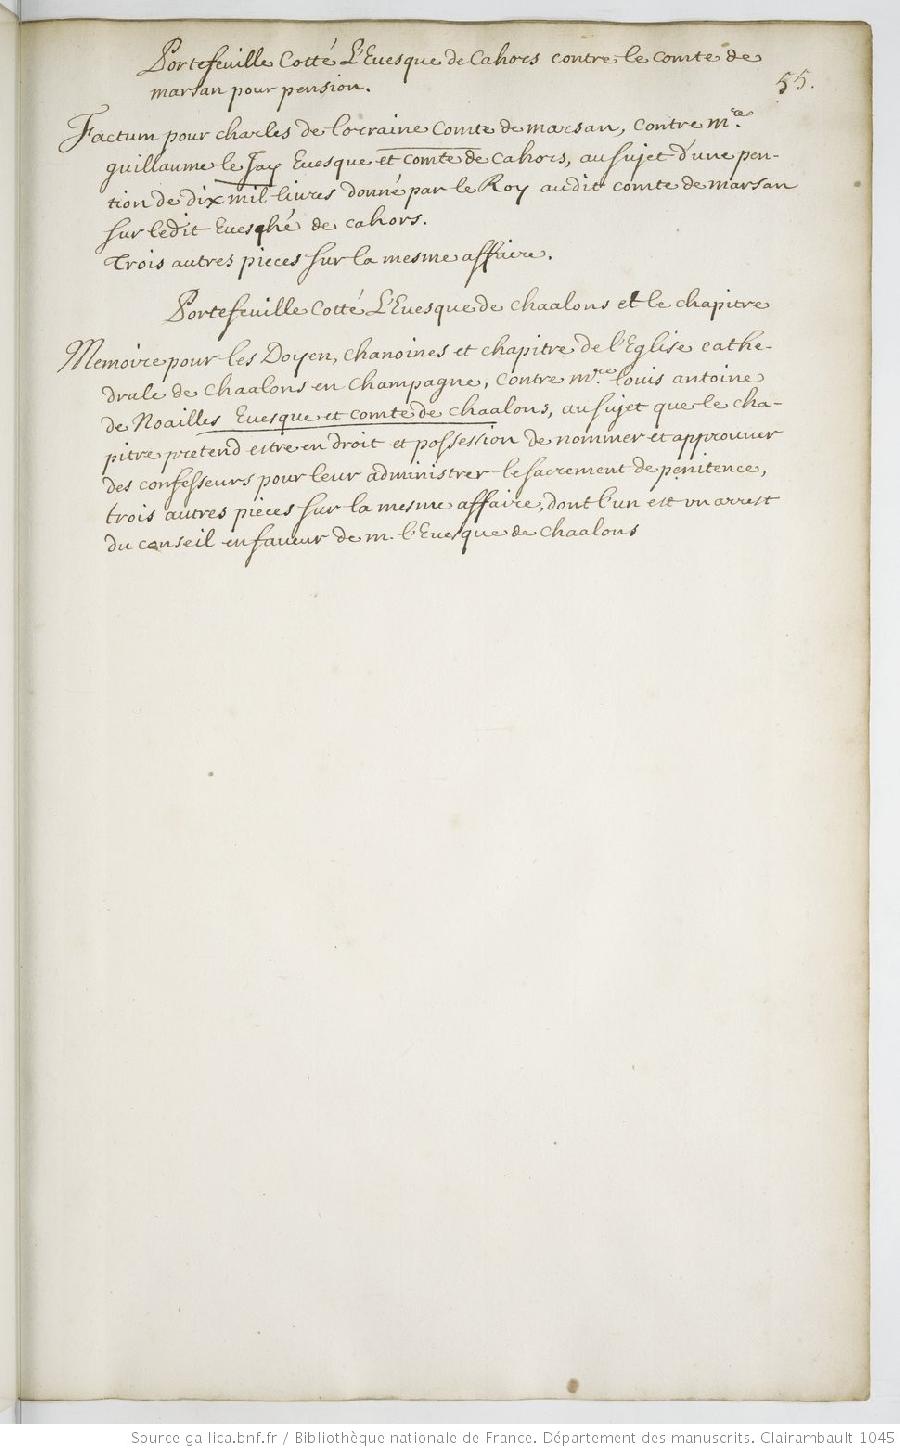 Portefeuille Cotté L'Euesque de Cahors contre le Comte de
marsan pour pension.
55.
Factum pour charles de lorraine Comte de marsan, contre mre.
guillaume le Jay Euesque et comte de Cahors, au sujet d'une pen-
tion de dix mil liures donné par le Roy audit comte de marsan
sur ledit Euesché de cahors.
Trois autres pieces sur la mesme affaire.
Portefeuille Cotté L'Euesque de Chaalons et le chapitre
Memoire pour les Doyen, chanoines et chapitre de l'Eglise cathe-
drale de Chaalons en Champagne, contre mre. louis antoine
de Noailles Euesque et comte de Chaalons, au sujet que le cha-
pitre pretend estre en droit et possession de nommer et approuuer
des confesseurs pour leur administrer le sacrement de penitence,
trois autres pieces sur la mesme affaire, dont l'un est un arrest
du conseil en faueur de m. l'Euesque de Chaalons
Source gallica.bnf.fr / Bibliothèque nationale de France. Département des manuscrits. Clairambault 1045